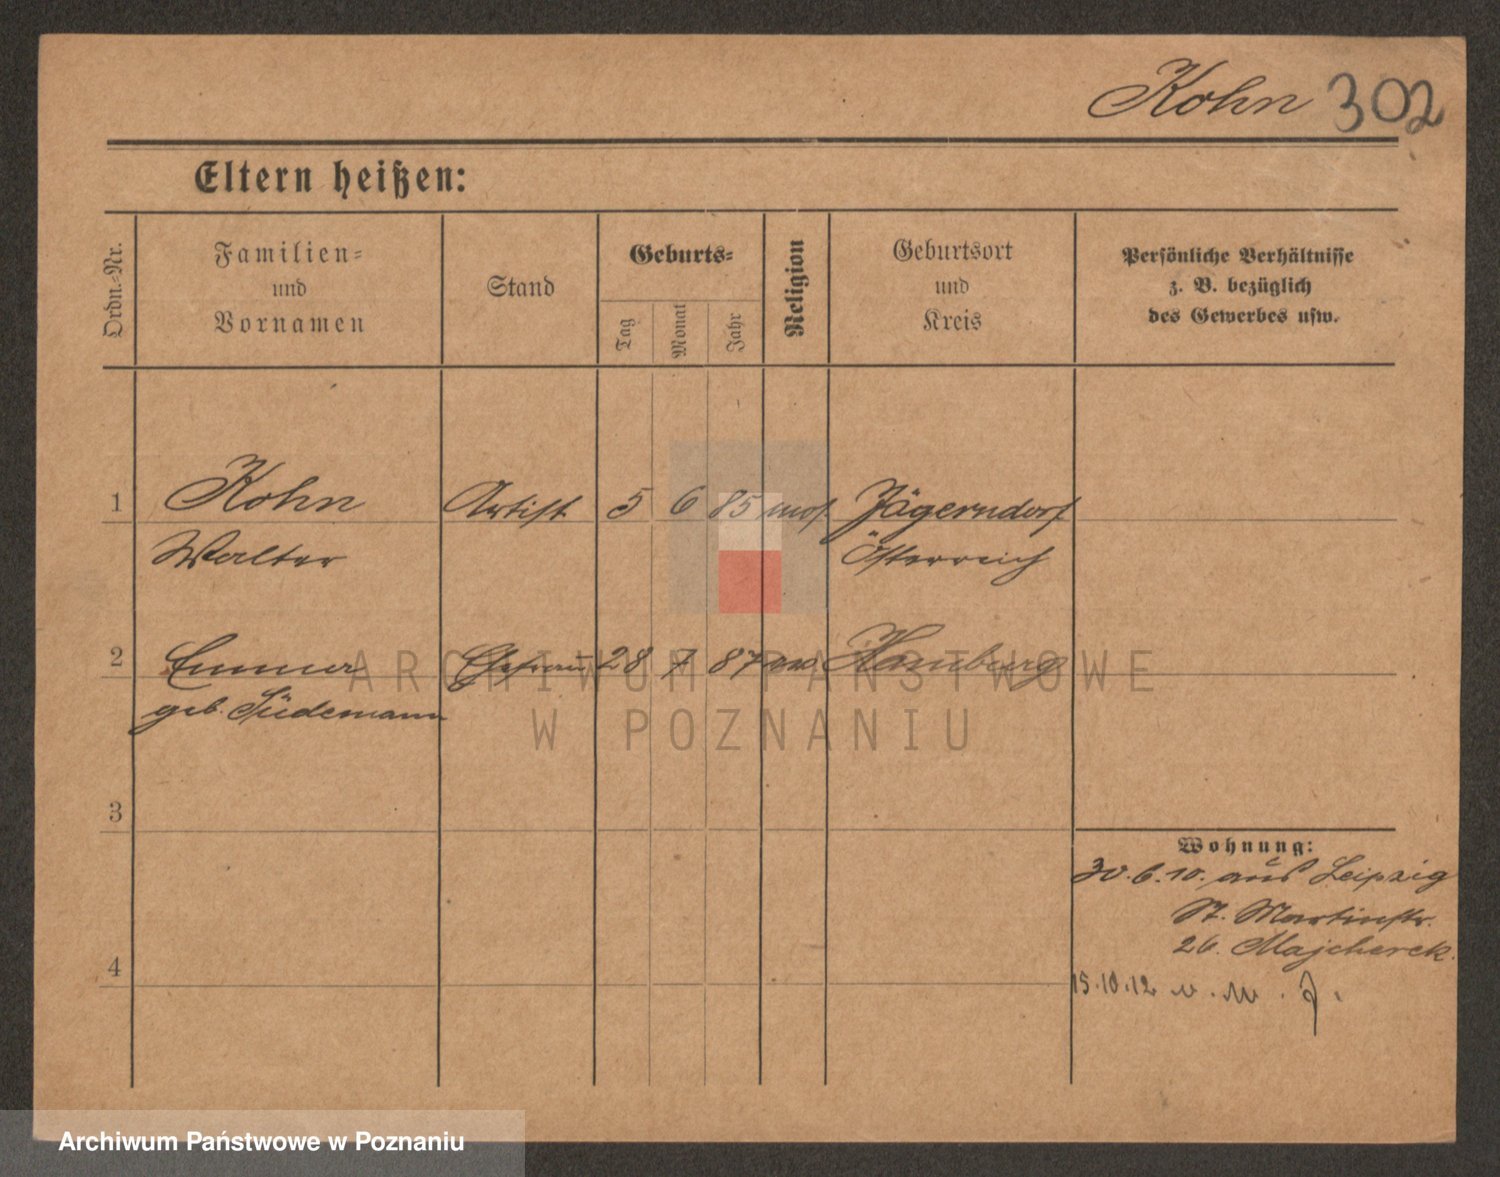 Kohn 302
Eltern heißen:
Ordn.-Nr.
Familien-
und
Vornamen
Stand
Geburts-
Tag
Monat
Jahr
Religion
Geburtsort
und
Kreis
Persönliche Verhältnisse
z. B. bezüglich
des Gewerbes usw.
1 Kohn Artist 5 6 85 mos. Jägerndorf
Walter Österreich
2 Emma Ehefrau 28 7 87 Hamburg
geb. Südemann
3
4
Wohnung:
30.6.10. aus Leipzig
St. Martinstr.
26. Majcherek.
15.10.12
ARCHIWUM PAŃSTWOWE
W POZNANIU
Archiwum Państwowe w Poznaniu